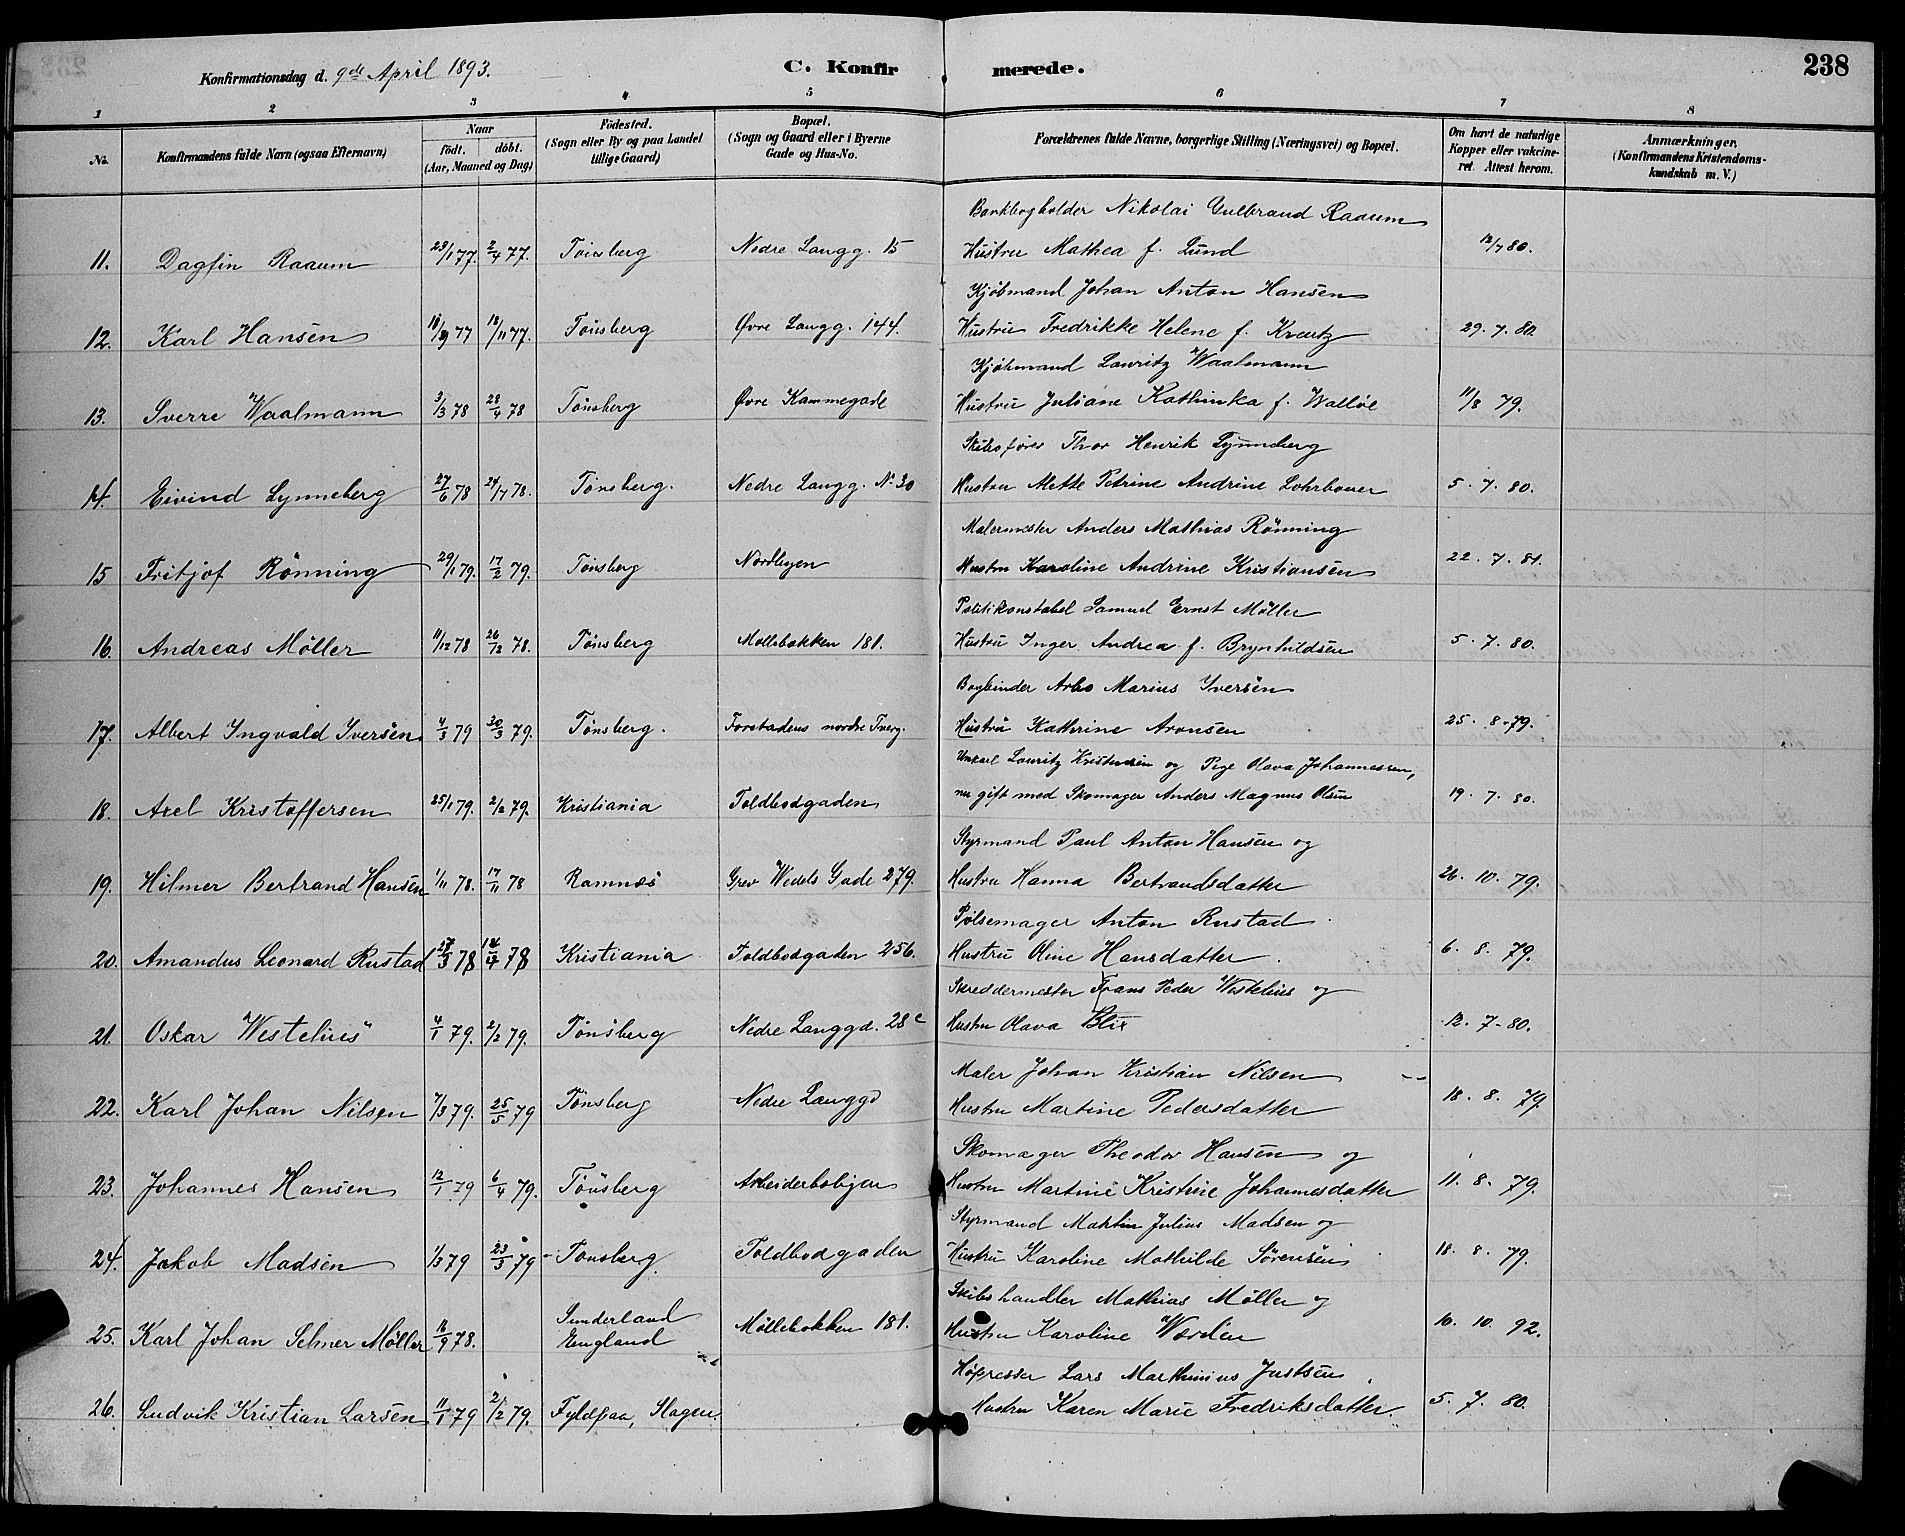 Konfirmationsdag d. 9de April 1893.
C. Konfirmerede.
238
1 2 3 4 5 6 7 8
No.
Konfirmandens fulde Navn (ogsaa Efternavn)
Naar
födt. döbt.
(Aar, Maaned og Dag)
Födested.
(Sogn eller By og paa Landet
tillige Gaard)
Bopæl.
(Sogn og Gaard eller i Byerne
Gade og Hus-No.
Forældrenes fulde Navne, borgerlige Stilling (Næringsvei) og Bopæl.
Om havt de naturlige
Kopper eller vakcine-
ret. Attest herom.
Anmærkninger.
(Konfirmandens Kristendoms-
kundskab m. V.)
Bankbogholder Nikolai Gulbrand Raaum
11. Dagfin Raaum 23/1 77. 2/4 77. Tönsberg Nedre Langg. 15 Hustru Mathea f. Lund 12/7 80.
Kjöbmand Johan Anton Hansen
12. Karl Hansen 18/9 77 18/11 77. Tönsberg Øvre Langg. 144. Hustru Fredrikke Helene f. Kreutz 29. 7. 80.
Kjöbmand Lauritz Waalmann
13. Sverre Waalmann 3/3 78 28/4 78 Tönsberg Øvre Kammegade Hustru Juliane Kathinka f. Wallöe 11/8 79.
Skibsförer Thor Henrik Lynneberg
14. Eivind Lynneberg 27/6 78 24/7 78. Tönsberg. Nedre Langg. No 30 Hustru Mette Petrine Andrine Lohrbauer 5. 7. 80.
Malermester Anders Mathias Rönning
15 Fritjof Rönning 29/1 79. 17/2 79. Tönsberg Nordbyen Hustru Karoline Andrine Kristiansen 22. 7. 81.
Politikonstabel Samuel Ernst Möller
16. Andreas Möller 11/12 78 26/12 78. Tönsberg Möllebakken 181. Hustru Inger Andrea f. Brynhildsen 5. 7. 80.
Bogbinder Arho Marius Iversen
17. Albert Ingvald Iversen 4/3 79 30/3 79. Tönsberg. Forstadens nordre Tverg. Hustru Kathrine Aronsen 25. 8. 79.
Unkarl Lauritz Kristensen og Pige Olava Johannessen,
18. Axel Kristoffersen 25/1 79. 2/2 79. Kristiania Toldbodgaden nu gift med Skomager Anders Magnus Olsen 19. 7. 80.
Styrmand Paul Anton Hansen og
19. Hilmer Bertrand Hansen 1/11 78. 17/11 78 Ramnæs Grev Wedels Gade 279. Hustru Hanna Bertrandsdatter 26. 10. 79.
Pölsemager Anton Rustad
20. Amandus Leonard Rustad 27/3 78 14/4 78 Kristiania Toldbodgaden 256. Hustru Oline Hansdatter. 6. 8. 79.
Skreddermester Frans Peder Westelius og
21. Oskar Westelius 4/1 79. 2/2 79. Tönsberg Nedre Langgd. 28c Hustru Olava Blix 12. 7. 80.
Maler Johan Kristian Nilsen
22. Karl Johan Nilsen 7/3 79. 25/5 79 Tönsberg Nedre Langgd Hustru Martine Pedersdatter 18. 8. 79.
Skomager Theodor Hansen og
23. Johannes Hansen 12/1 79 6/4 79. Tönsberg Arbeiderbobyen Hustru Martine Kristine Johannesdatter 11. 8. 79.
Styrmand Martin Julius Madsen og
24. Jakob Madsen 1/3 79 23/3 79 Tönsberg. Toldbodgaden Hustru Karoline Mathilde Sörensen 18. 8. 79.
Skibshandler Mathias Möller og
25. Karl Johan Selmer Möller 16/9 78. Sunderland England Möllebakken 181. Hustru Karoline Wardin 10. 10. 92.
Höpresser Lars Marthinius Justsen
26. Ludvik Kristian Larsen 11/1 79 2/2 79. Fyldpaa, Slagen. Hustru Karen Marie Fredriksdatter. 5. 7. 80.